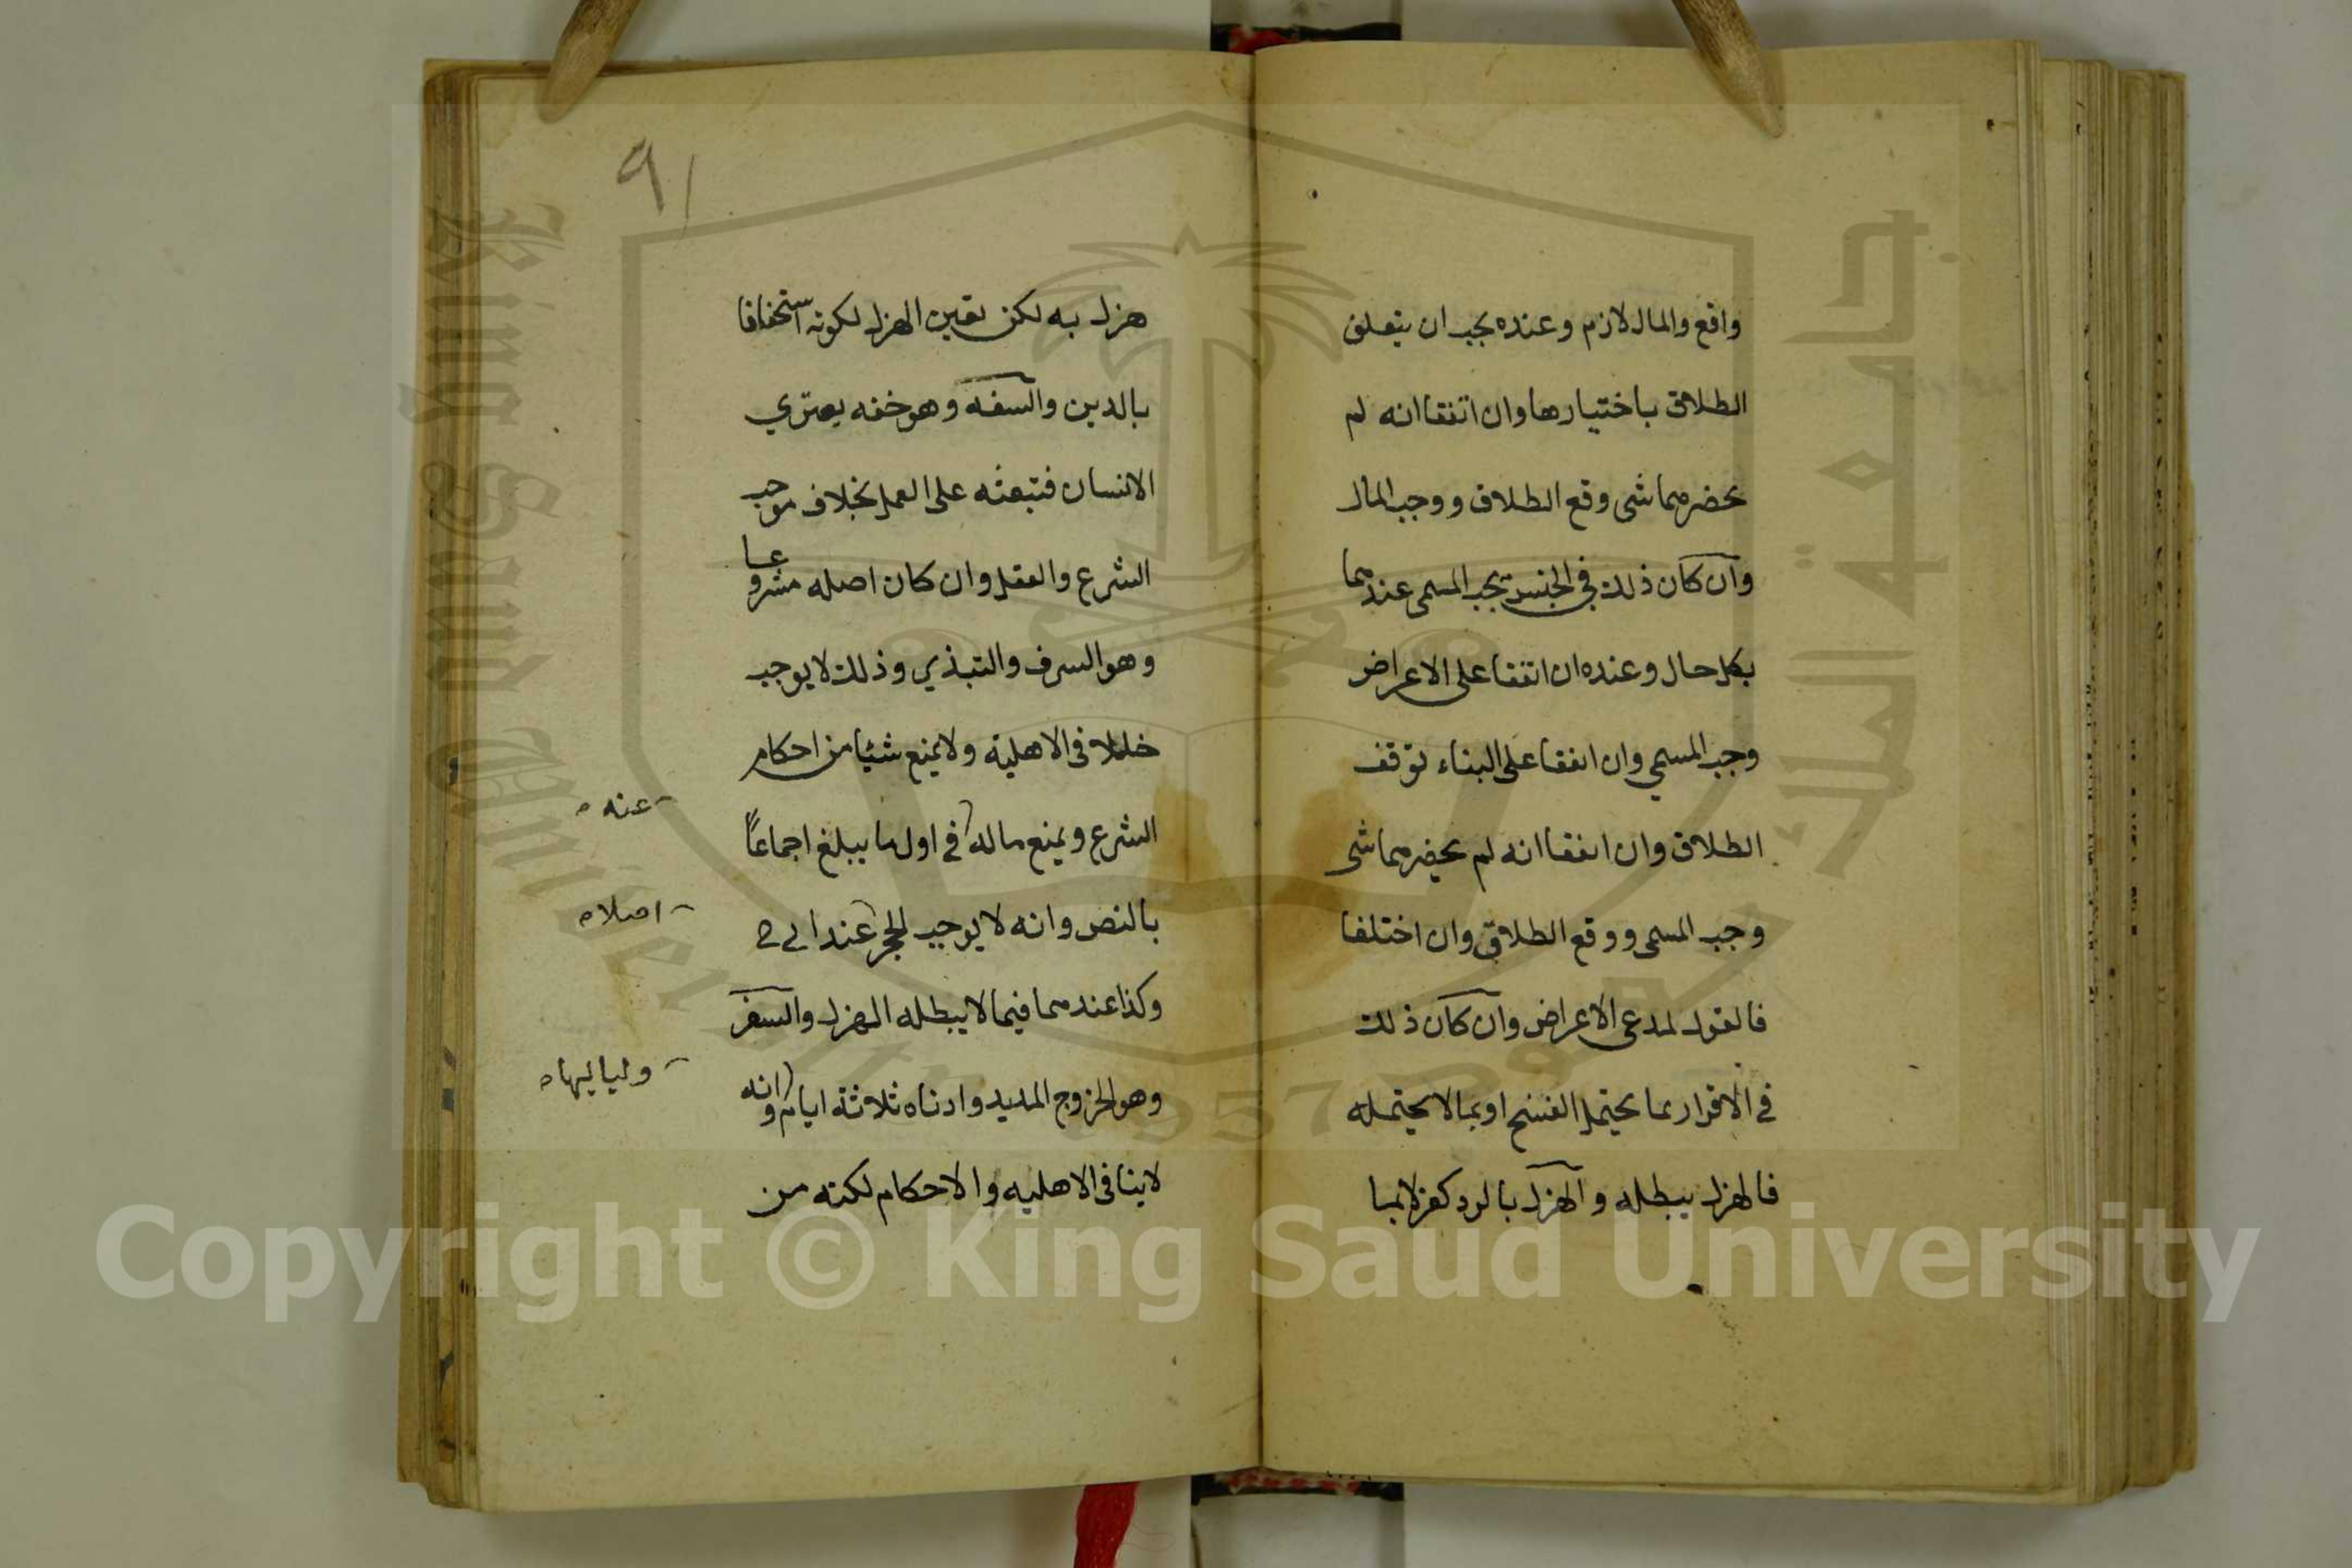 واقع والمال لازم وعنده يجب ان يتعلق
الطلاق باختيارها وان اتفقا انه لم
يحضرهما شى وقع الطلاق ووجب المال
وان كان ذلك في الجنس يجب المسمى عندهما
بكل حال وعنده ان اتفقا على الاعراض
وجب المسمى وان اتفقا على البناء توقف
الطلاق وان اتفقا انه لم يحضرهما شى
وجب المسمى ووقع الطلاق وان اختلفا
فالقول لمدعى الاعراض وان كان ذلك
في الاقرار بما يحتمل الفسخ او بما لا يحتمله
فالهزل يبطله والهزل بالرد كفر لا بما
91
هزل به لكن بعين الهزل لكونه استخفافا
بالدين والسفه وهو خفه يعتري
الانسان فتبعثه على العمل بخلاف موجب
الشرع والعقل وان كان اصله مشروعا
وهو السرف والتبذير وذلك لا يوجب
خللا في الاهلية ولا يمنع شيئا من احكام
الشرع ويمنع ماله في اول ما يبلغ اجماعاً
عنه
بالنص وانه لا يوجب الحجر عند ابي ح
اصلا
وكذا عندهما فيما لا يبطله الهزل والسفر
وهو الخروج المديد وادناه ثلاثة ايام وانه
ولياليها
لا ينافى الاهليه والاحكام لكنه من
King Saud University
جامعة الملك سعود
1957
Copyright © King Saud University